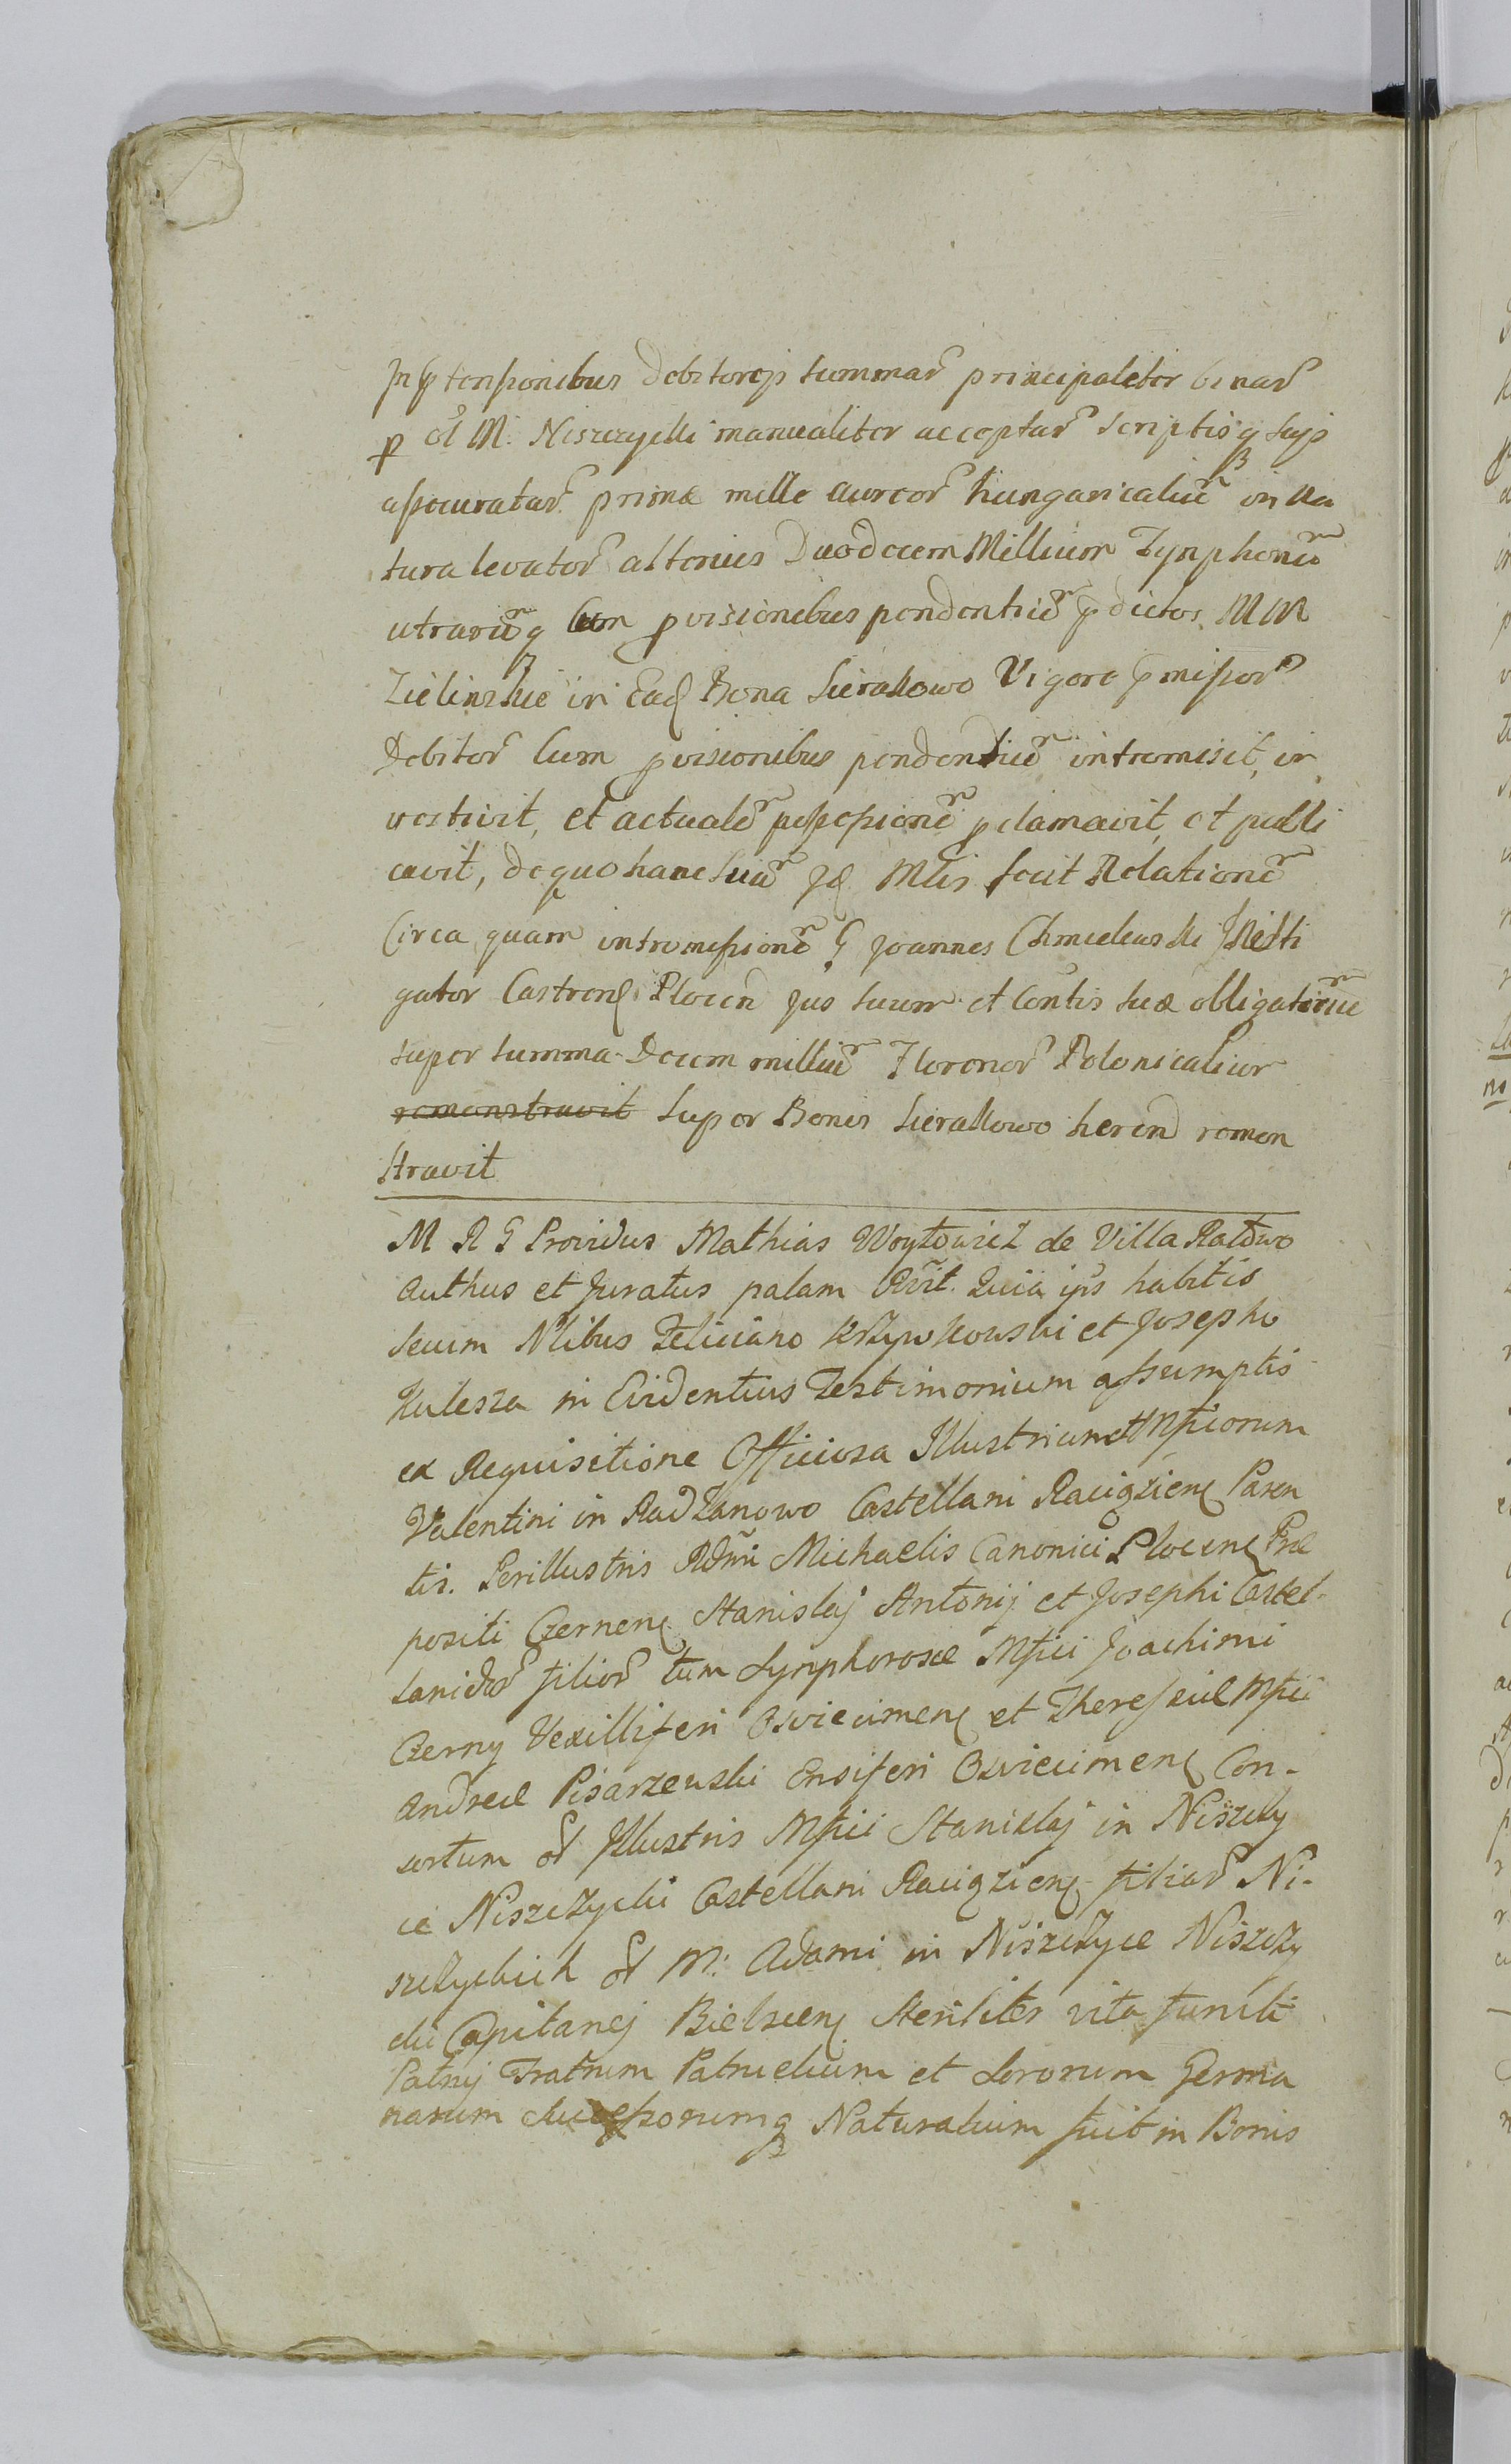 prætensionibus debitorijs summar principaliter binar
p ol M. Niszczycki manualiter acceptar scriptisq suis
assecuratar primæ mille aureor hungaricaliu in na
tura levator alterius Duodecem Millium Tynphonu
utrariuq cum provisionibus pendentiu prædictos MM
Zielinskie in Ead Bona Sierakowo Vigore præmissor
Debitor cum provisionibus pendentiu intromisit, in
vestivit, et actuale possessione proclamavit, et publi
cavit, de quo hanc sua Jd Mtis fecit Relatione
Circa quam intromissione G Joannes Chmielewski Insti
gator Castren Plocen Jus suum et Contis suæ obligatoriu
super summa Decem milliu Florenor Polonicalium
remonstravit super Bonis Sierakowo heren remon
stravit
M R G Providus Mathias Woytowicz de Villa Ratowo
Authus et Juratus palam Rvit. Quia ips habitis
secum Nlibus Feliciano Krzywkowski et Josepho
Kulesza in Evidentius Testimonium assumptis
ex Requisitione Officiosa Illustrium et Mficorum
Valentini in Radzanowo Castellani Raciązien Paren
tis. Perillustris Rdmi Michaelis Canonici Plocen Præ
positi Czernen Stanislaj Antonij et Josephi Castel-
lanidor filior tum Symphorosæ Mfici Joachimi
Czerny Vexilliferi Osviecimen et Theresiæ Mfici
Andreæ Pisarzewski Ensiferi Osviecimen Con-
sortum ol Illustris Mfici Stanislaj in Niszczy
ce Niszczycki Castellani Raciązien filiar Ni-
szczyckich ol M. Adami in Niszczyce Niszczy
cki Capitanej Bielscen Steriliter vita functi
Patruj Fratrum Patruelium et Sororum Germa
narum Successorumq Naturalium fuit in Bonis